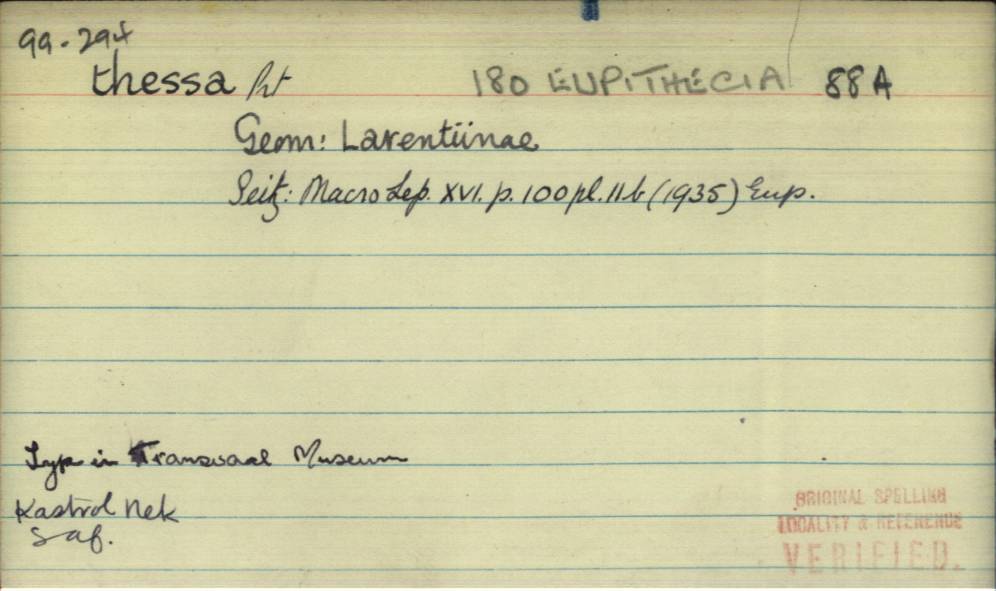 99-294
thessa Prt 180 EUPITHECIA 88A
Geom: Larentiinae
Seitz: Macro Lep. XVI. p. 100 pl. 11b (1935) Eup.
Type in Transvaal Museum
Kastrol Nek
S af.
ORIGINAL SPELLING
LOCALITY & REFERENCE
VERIFIED.